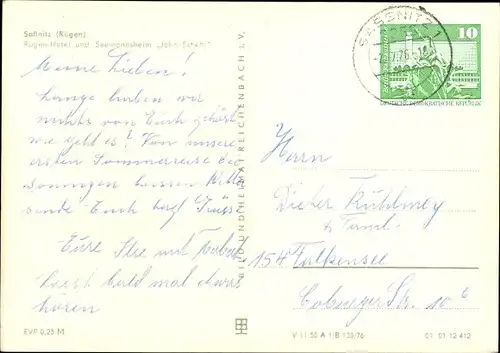 Saßnitz (Rügen)
Rügen-Hotel und Seemannsheim „John Schehr“
Meine Lieben!
Lange haben wir
nichts von Euch gehört
wie geht es? Von unserer
ersten Sommerreise bei
sonnigem
sende Euch herzl. Grüsse
Eure Ilse und
Lasst bald mal etwas
hören
EVP 0,25 M
BILD UND HEIMAT REICHENBACH I. V.
SASSNITZ 1
10
DEUTSCHE DEMOKRATISCHE REPUBLIK
Herrn
Dieter Kühlmey
& Faml.
154 Falkensee
Coburger Str. 10
V 11 50 A 1/B 139/76
01 01 12 412